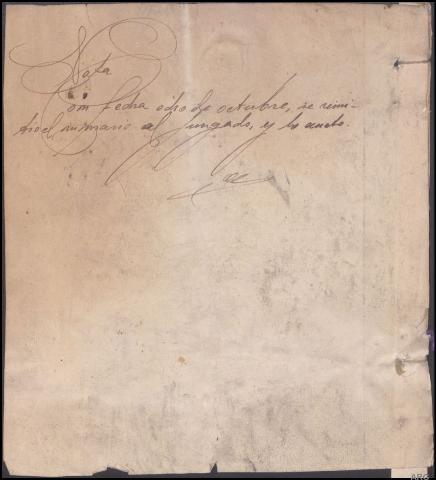 Nota
Con fecha ocho de octubre, se remi-
tio el sumario al Juzgado, y lo anoto.
ARG